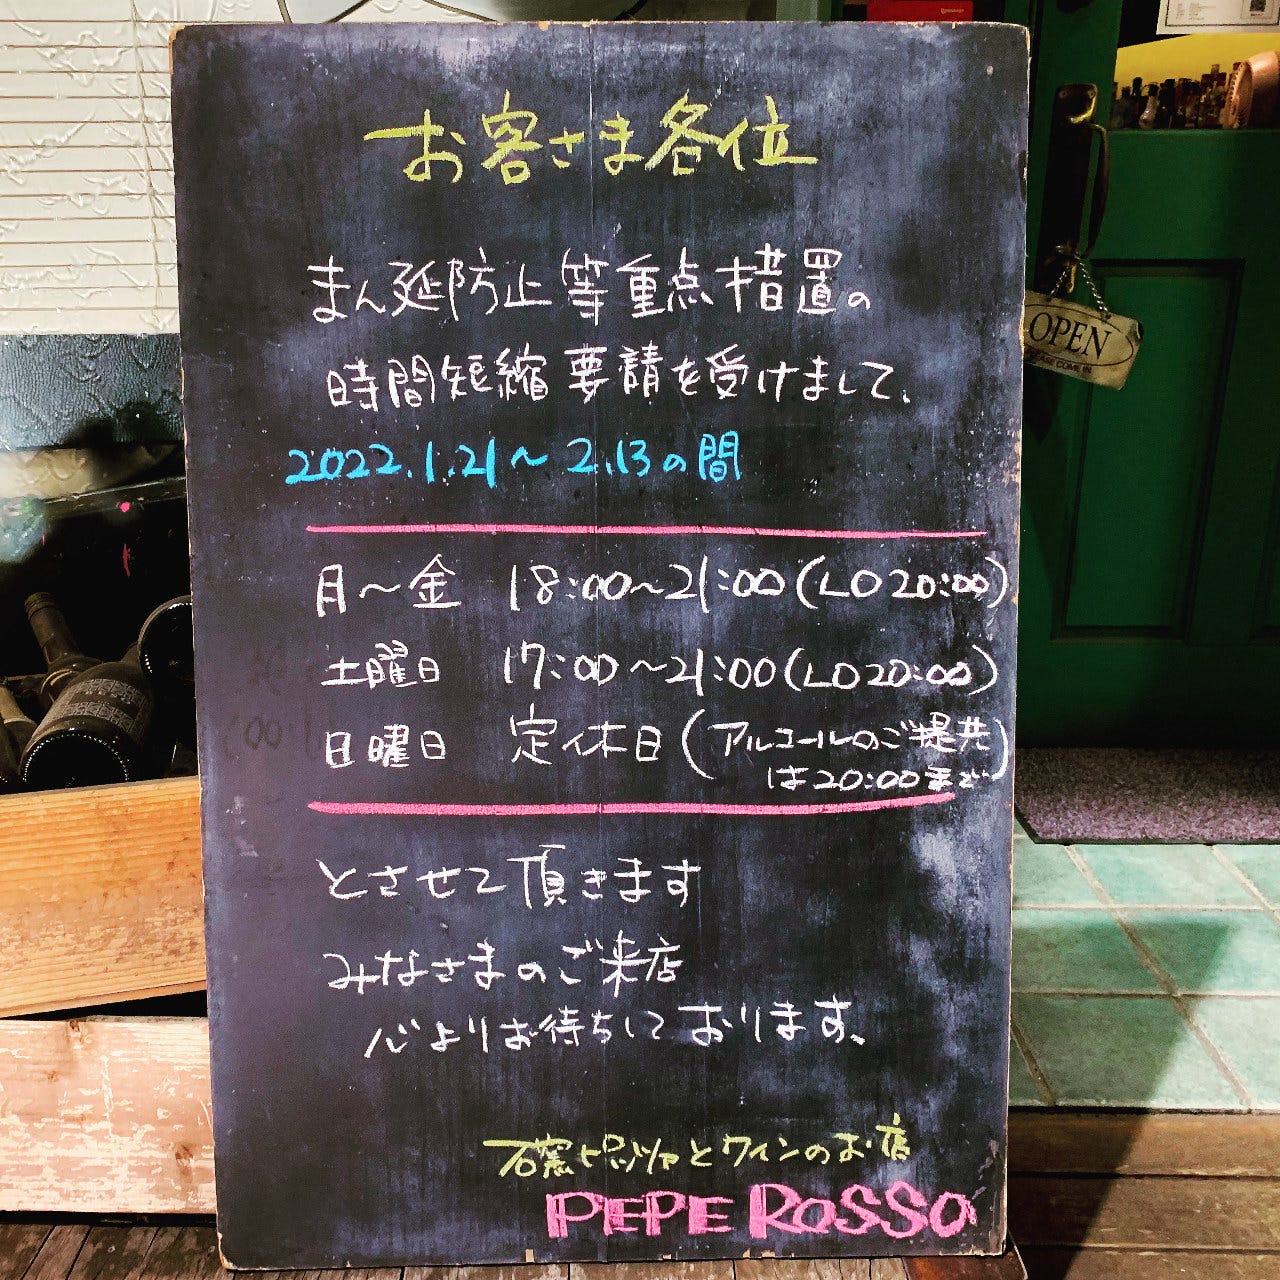 お客さま各位
まん延防止等重点措置の
時間短縮要請を受けまして、
2022.1.21～2.13の間
月～金 18:00～21:00(LO20:00)
土曜日 17:00～21:00(LO20:00)
日曜日 定休日(アルコールのご提供
は20:00まで)
とさせて頂きます
みなさまのご来店
心よりお待ちしております。
石窯ピッツァとワインのお店
PEPE ROSSO
OPEN
COME IN